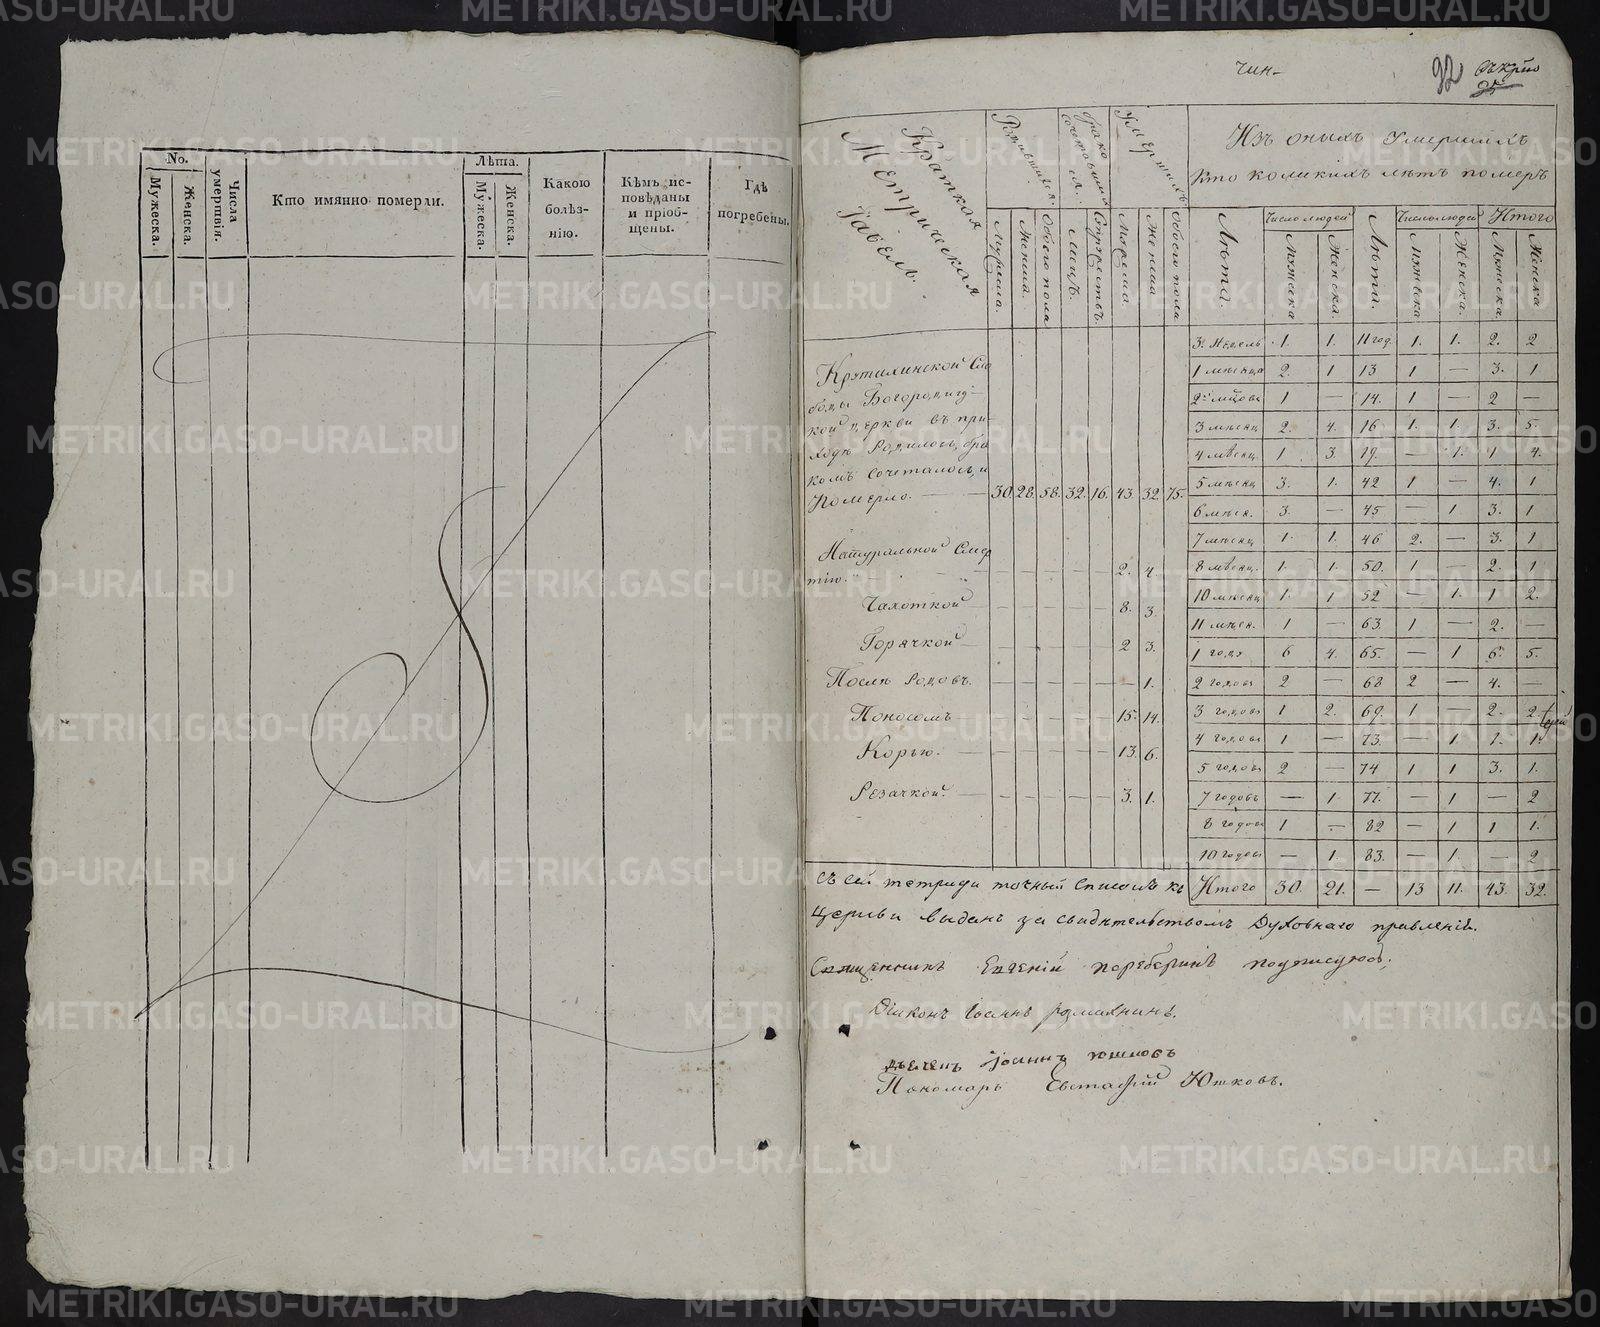 METRIKI.GASO-URAL.RU
No.
Мужеска.
Женска.
Числа умертвія.
Кто имянно померли.
Лѣта.
Мужеска.
Женска.
Какою болѣзнію.
Кѣмъ исповѣданы и пріобщены.
Гдѣ погребены.
чин-
92
Краткая Метрическая Табель.
Родившихся.
Мужеска.
Женска.
Обоего пола
Лицъ.
Супружествъ.
Умершихъ
Мужеска.
Женска
Обоего пола
Изъ оныхъ умершихъ
кто коликихъ лѣтъ померъ
Лѣта. Число людей Лѣта. Число людей Итого
Мужеска Женска. Мужеска Женска. Мужеска Женска
Крутихинской Сло
боды Богородиц-
кой церкви въ при-
ходѣ Родилось, бра
комъ сочеталось, и
Померло. — 30. 28. 58. 32. 16. 43. 32. 75.
Натуральной Смер
тію. — — — — — 2. 4.
Чахоткой — — — — — 8. 3.
Горячкой — — — — — 2 3.
Послѣ Родовъ. — — — — — — 1.
Поносомъ — — — — — 15. 14.
Корью. — — — — — 13. 6.
Резачкой. — — — — — 3. 1.
3. Недель 1. 1. 11 год. 1. 1. 2. 2
1 мѣсяца 2. 1 13 1 — 3. 1
2 1 — 14. 1 — 2 —
3 мѣсяц 2. 4. 16 1. 1. 3. 5.
4 мѣсяц. 1 3. 19. — 1. 1 4.
5 мѣсяц 3. 1. 42 1 — 4. 1
6 мѣсяц. 3. — 45 — 1 3. 1
7 мѣсяц 1. 1. 46 2. — 3. 1
8 мѣсяц. 1. 1. 50. 1 — 2. 1
10 мѣсяц 1. 1 52 — 1. 1 2.
11 мѣсяц. 1 — 63. 1 — 2. —
1 году 6 4. 65. — 1 6. 5.
2 годовъ 2 — 68 2 — 4. —
3 годовъ 1 2. 69. 1 — 2. 2.
4 годовъ 1 — 73. — 1. 1. 1.
5 годовъ 2 — 74 1 1 3. 1.
7 годовъ — 1. 77. — 1 — 2
8 годовъ 1 — 82 — 1 1 1.
10 годовъ — 1. 83. — 1. — 2
Итого 30. 21. — 13 11. 43. 32.
съ сей тетради точный списокъ къ
церкви выданъ за свидѣтельствомъ Духовнаго правленія.
Священникъ Евгеній подписуюсь.
Діаконъ Іоаннъ
Іоаннъ
Пономарь Евстафій Ютковъ.